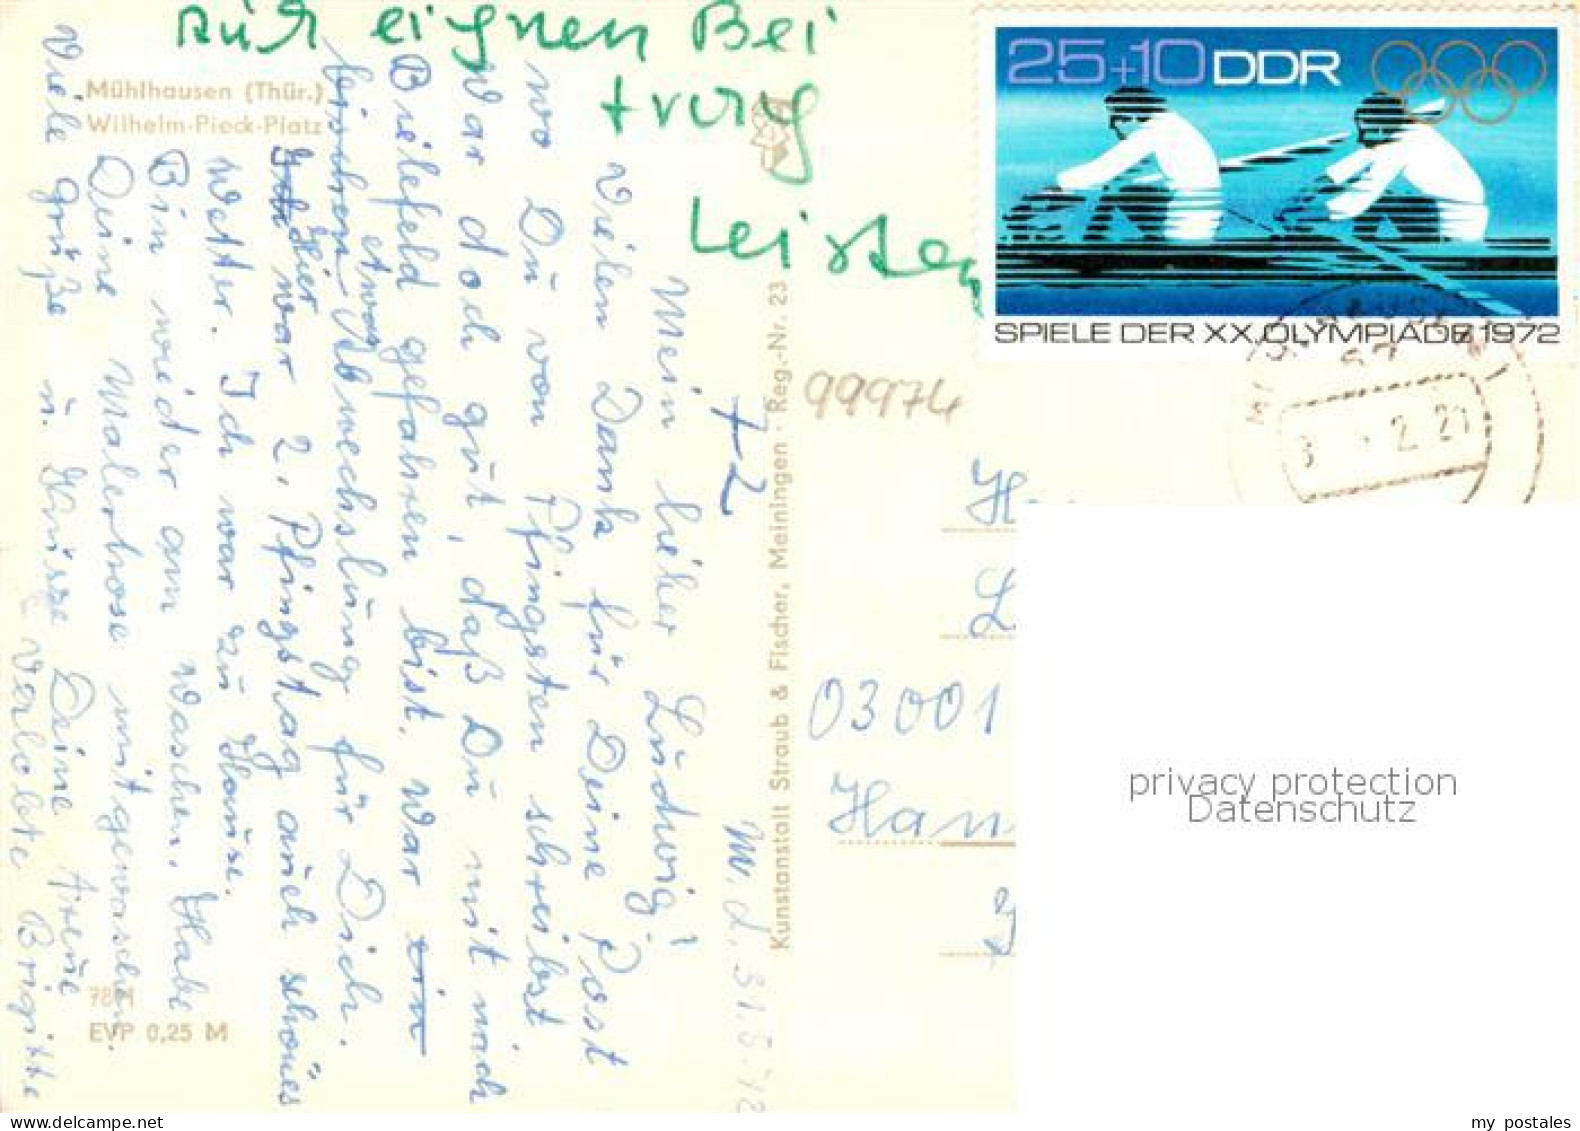 zur eignen Bei
trung
Leisten
Mühlhausen (Thür.)
Wilhelm-Pieck-Platz
25+10 DDR
SPIELE DER XX. OLYMPIADE 1972
MÜHLHAUSEN
99974
+2
Kunstanstalt Straub & Fischer, Meiningen · Reg.-Nr. 23
M. d. 31.5.72
Mein lieber Ludwig!
Vielen Dank für Deine Post
wo Du von Pfingsten schreibst.
War doch gut, daß Du mit nach
Bielefeld gefahren bist. War ein
etwas
bischen Abwechslung für Dich.
Hier war 2. Pfingstag auch schönes
Wetter. Ich war zu Hause.
Bin wieder am Waschen. Habe
Deine Malerhose mitgewaschen.
Viele Grüße u. Küsse Deine treue
Verlobte Brigitte
EVP 0,25 M
H
L
03001
Han
privacy protection
Datenschutz
my postales